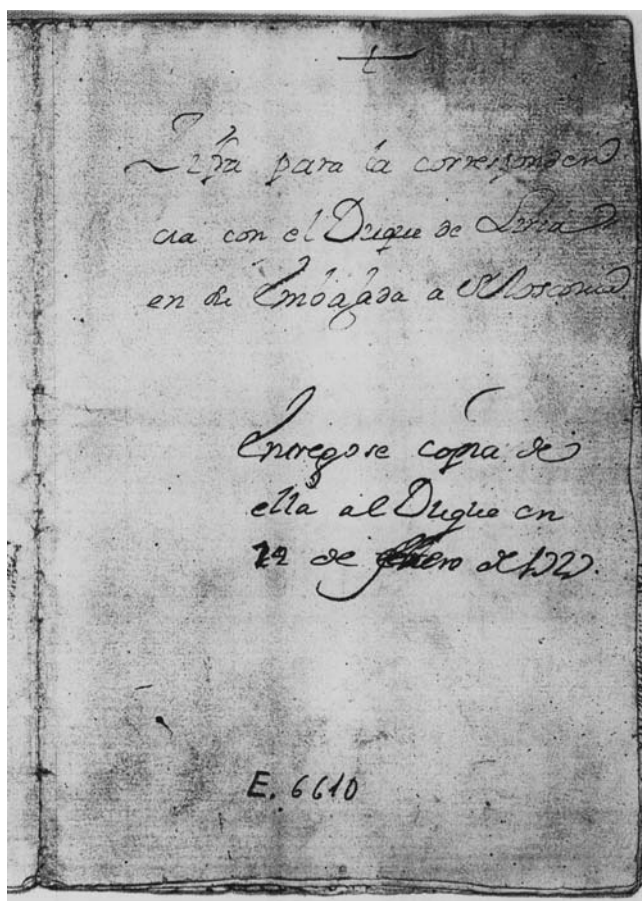 Zifra para la corresponden
cia con el Duque de Liria
en su Embajada a Moscovia
Entregose copia de
ella al Duque en
de Enero de 1727.
E. 6610